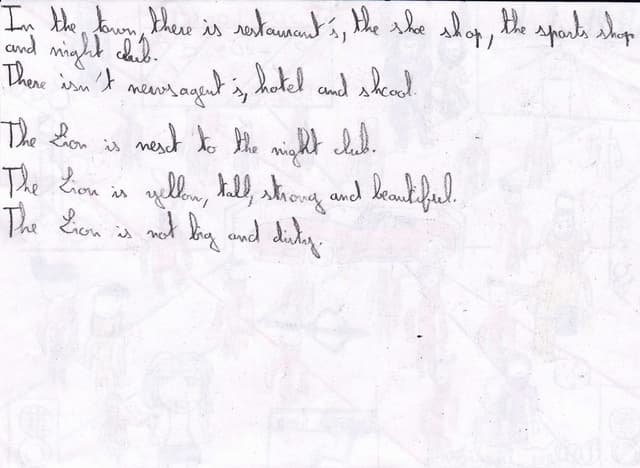 In the town, there is restaurant's, the shoe shop, the sports shop
and night club.
There isn't newsagent's, hotel and shcool.
The Lion is nesct to the night club.
The Lion is yellow, tall, strong and beautifull.
The Lion is not big and dirty.